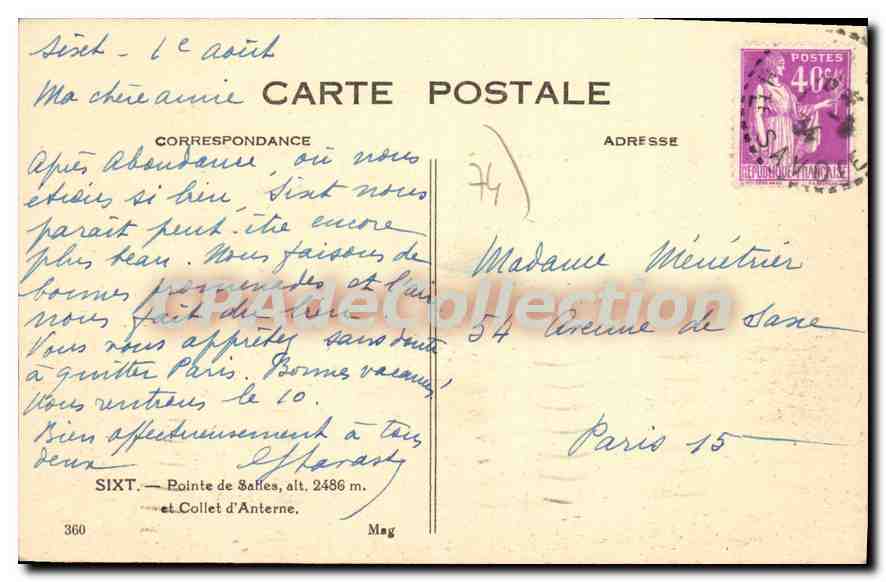 Sixt - 1e août
Ma chère amie
CARTE POSTALE
CORRESPONDANCE
ADRESSE
Après Abondance, où nous
étions si bien, Sixt nous
paraît peut-être encore
plus beau. Nous faisons de
bonnes promenades et l'air
nous fait du bien.
Vous vous apprêtez sans doute
à quitter Paris. Bonnes vacances!
Nous rentrons le 10.
Bien affectueusement à tous
deux
SIXT. — Pointe de Salles, alt. 2486 m.
et Collet d'Anterne.
360
Mag
74
POSTES
40c
REPUBLIQUE FRANÇAISE
SAVOIE
Madame Ménétrier
54 Avenue de Saxe
Paris 15
CPAdeCollection.com